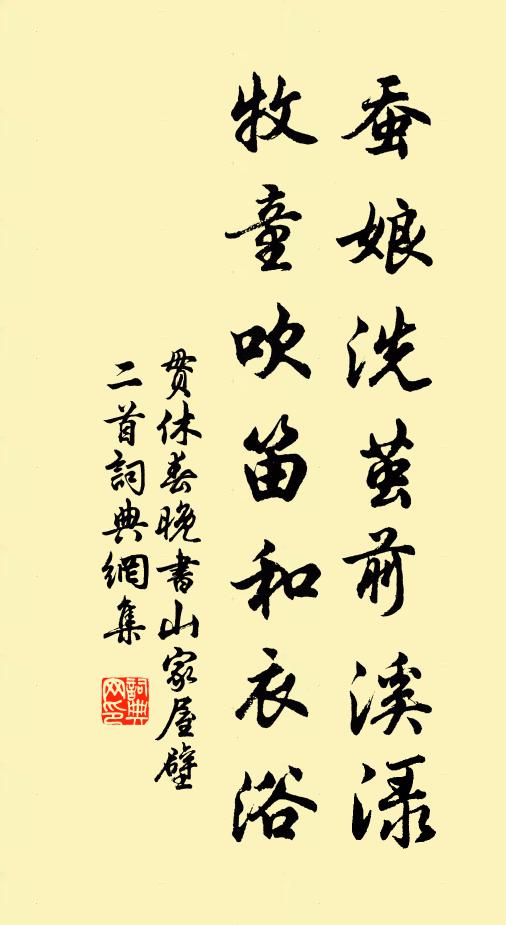 蚕娘洗茧前溪渌
牧童吹笛和衣浴
贯休春晚书山家屋壁
二首词典網集
詞典网印